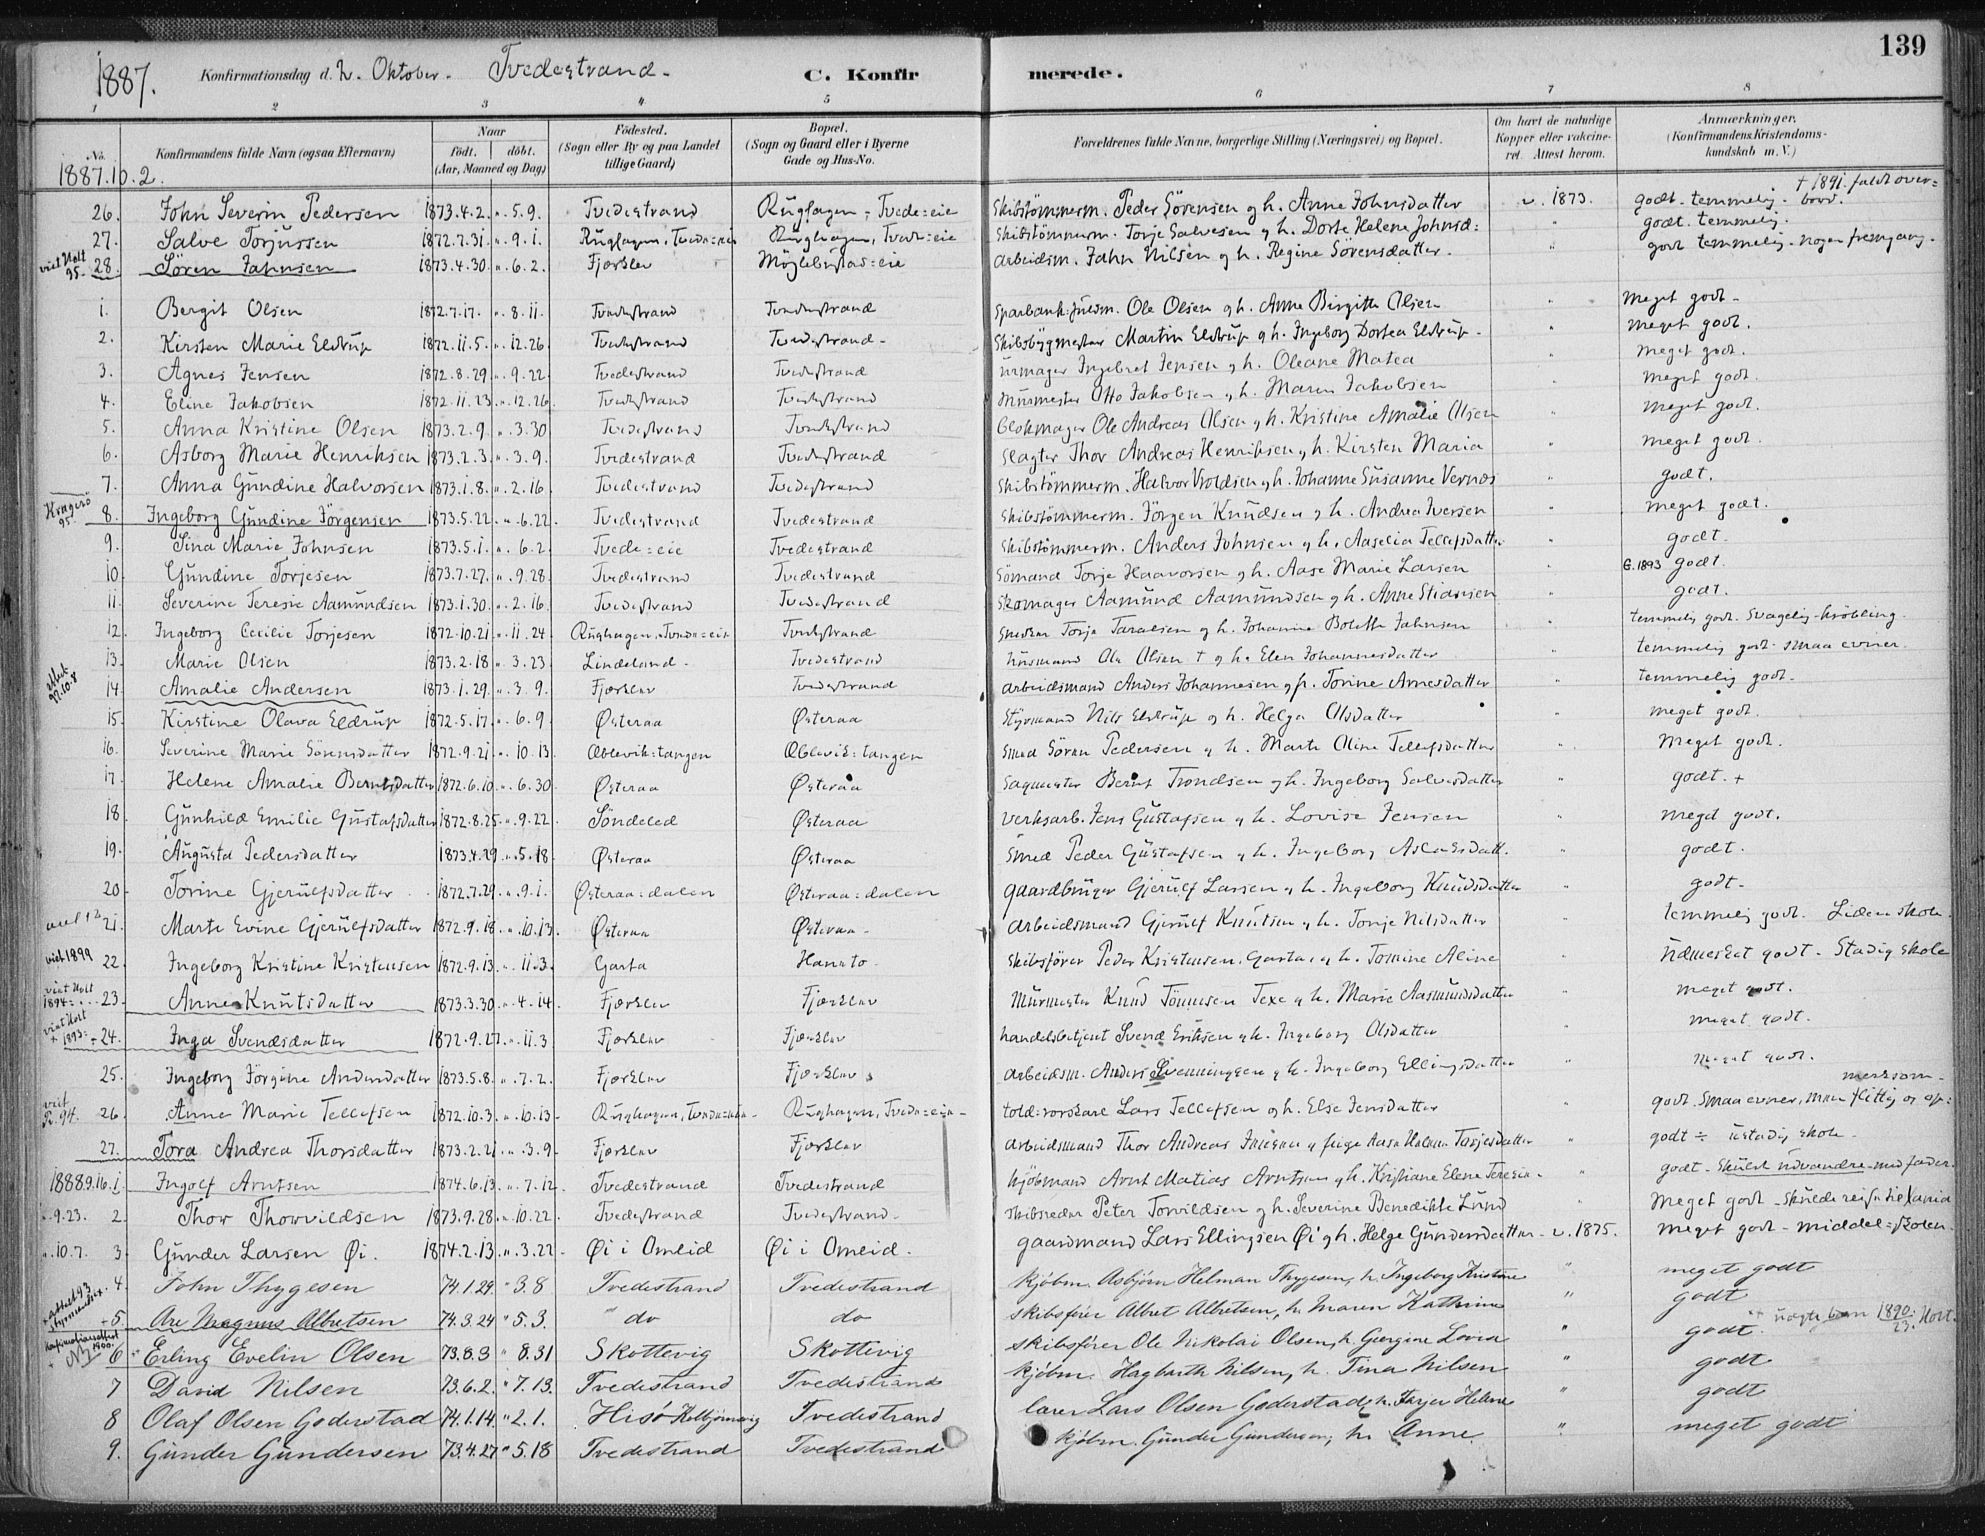 139
1887. Konfirmationsdag d. 2. Oktober. Tvedestrand. C. Konfirmerede.
1 2 3 4 5 6 7 8
No. Konfirmandens fulde Navn (ogsaa Efternavn) Naar født. døbt. (Aar, Maaned og Dag) Fødested. (Sogn eller By og paa Landet tillige Gaard) Bopæl. (Sogn og Gaard eller i Byerne Gade og Hus-No. Forældrenes fulde Navne, borgerlige Stilling (Næringsvei) og Bopæl. Om havt de naturlige Kopper eller vakcineret. Attest herom. Anmærkninger. (Konfirmandens Kristendomskundskab m. V.)
1887.10.2.
26. John Severin Pedersen 1873.4.2. „ 5.9. Tvedestrand Tvede=eie Skibstömmerm. Peder Sörensen og h. Anne Johnsdatter v. 1873. godt - temmelig - † 1891. faldt over=bord.
27. Salve Torjussen 1872.7.31. „ 9.1. Tvede=eie Tvede=eie Skibstömmerm. Torje Salvesen og h. Dorte Helene Johnsd: „ godt. temmelig.
viet Holt 95. 28. Sören Jahnsen 1873.4.30. „ 6.2. Fjærkler Möglebustad=eie Arbeidsm. Jahn Nilsen og h. Regine Sörensdatter. „ godt temmelig - nogen fremgang.
1. Bergit Olsen 1872.7.17. „ 8.11. Tvedestrand Tvedestrand Ole Olsen og h. Anne Birgitte Olsen „ Meget godt -
2. Kirsten Marie Eldrup 1872.11.5. „ 12.26. Tvedestrand Tvedestrand - Skibsbygmester Martin Eldrup og h. Ingeborg Dortea Eldrup - „ meget godt.
3. Agnes Jensen 1872.8.29. „ 9.22. Tvedestrand Tvedestrand urmager Ingebret Jensen og h. Oleane Matea „ meget godt.
4. Eline Jakobsen 1872.11.23. „ 12.26. Tvedestrand Tvedestrand murmester Otto Jakobsen og h. Maren Jakobsen „ meget godt.
5. Anna Kristine Olsen 1873.2.9. „ 3.30 Tvedestrand Tvedestrand Blokmager Ole Andreas Olsen og h. Kristine Amalie Olsen „ meget godt.
6. Asborg Marie Henriksen 1873.2.3. „ 3.9. Tvedestrand Tvedestrand Slagter Thor Andreas Henriksen og h. Kirsten Maria „ meget godt.
7. Anna Gundine Halvorsen 1873.1.8. „ 2.16. Tvedestrand Tvedestrand Skibstömmerm. Halvor Vroldsen og h. Johanne Susanne Vernes „ godt.
Kragerö 95. 8. Ingeborg Gundine Jörgensen 1873.5.22. „ 6.22. Tvedestrand Tvedestrand Skibstömmerm. Jörgen Knudsen og h. Andrea Iversen „ meget godt.
9. Sina Marie Johnsen 1873.5.1. „ 6.2. Tvede=eie Tvedestrand Skibstömmerm. Anders Johnsen og h. Aaselia Tellefsdatter „ godt.
10. Gundine Torjesen 1873.7.27. „ 9.28. Tvedestrand Tvedestrand Sömand Torje Haavorsen og h. Aase Marie Larsen „ G. 1893 godt.
11. Severine Teresie Aamundsen 1873.1.30. „ 2.16. Tvedestrand Tvedestrand Skomager Aamund Aamundsen og h. Anne Stiansen „ godt.
12. Ingeborg Cecilie Torjesen 1872.10.21. „ 11.24. Tvede=eie Tvedestrand Snedker Torje Taralsen og h. Johanne Bolette Jahnsen „ temmelig godt. Svagelig-kröbling.
13. Marie Olsen 1873.2.18 „ 3.23. Lindeland - Tvedestrand husmand Ole Olsen † og h. Elen Johannesdatter „ temmelig godt - smaa evner.
attest 97.10.8 14. Amalie Andersen 1873.1.29. „ 3.9. Fjærkler Tvedestrand arbeidsmand Anders Johannesen og fr. Torine Arnesdatter „ temmelig godt.
15. Kirstine Olava Eldrup 1872.5.17. „ 6.9. Østeraa Østeraa Styrmand Nils Eldrup og h. Helga Olsdatter „ meget godt.
16. Severine Marie Sörensdatter 1872.9.21. „ 10.13. Oblevik=tangen Oblevik=tangen Smed Sören Pedersen og h. Marte Oline Tellefsdatter „ Meget godt.
17. Helene Amalie Berntsdatter 1872.6.10 „ 6.30. Østeraa Østeraa Sagmester Bernt Trondsen og h. Ingeborg Salvesdatter „ godt. +
18. Gunhild Emilie Gustafsdatter 1872.8.25. „ 9.22. Söndeled Østeraa verksarb. Jens Gustafsen og h. Lovise Jensen „ meget godt.
19. Augusta Pedersdatter 1873.4.29. „ 5.18. Østeraa Østeraa Smed Peder Gustafsen og h. Ingeborg Aslaksdatt. „ godt.
20. Torine Gjerulfsdatter 1872.7.29. „ 9.1. Østeraa=dalen Østeraa=dalen gaardbruger Gjerulf Larsen og h. Ingeborg Knudsdatter „ godt.
21. Marte Evine Gjerulfsdatter 1872.9.18 „ 10.13. Østeraa Østeraa - arbeidsmand Gjerulf Knutsen og h. Tonje Nilsdatter „ temmelig godt. Liden skole.
viet 1899 22. Ingeborg Kristine Kristensen 1872.9.13. „ 11.3. Garta Hannto - Skibsförer Peder Kristensen, Garta, og h. Tomine Aline „ udmerket godt - Stadig skole
viet Holt 1894 23. Anne Knutsdatter 1873.3.30. „ 4.14. Fjærkler Fjærkler Murmester Knud Tönnesen Texe og h. Marie Aasmundsdatter „ meget godt.
viet Holt 1893 24. Inga Svendsdatter 1872.9.27. „ 11.3 Fjærkler Fjærkler handelsbetjent Svend Eriksen og h. Ingeborg Olsdatter „ meget godt.
25. Ingeborg Jörgine Andersdatter 1873.5.8. „ 7.2. Fjærkler Fjærkler arbeidsm. Anders Svenningsen og h. Ingeborg Ellingsdatter „ meget godt.
viet 94. 26. Anne Marie Tellefsen 1872.10.3. „ 10.13. Tvede=eie - Tvede=eie - told=rorskarl Lars Tellefsen og h. Else Jensdatter „ godt - smaa evner, men flittig og op=merksom -
27. Tora Andrea Thorsdatter 1873.2.21. „ 3.9. Fjærkler Fjærkler arbeidsmand Thor Andreas Jensen og pige Aasa Helene Torjesdatter „ godt ÷ ustadig skole -
1888.9.16. 1. Ingolf Arntsen 1874.6.13. „ 7.12. Tvedestrand Tvedestrand kjöbmand Arnt Matias Arntsen og h. Kristiane Elene Teresia - „ godt - skulde udvandre med fader.
„ .9.23. 2. Thorv Thorvildsen 1873.9.28. „ 10.22. Tvedestrand Tvedestrand - Skibsreder Peter Torvildsen og h. Severine Benedikte Lund „ Meget godt - skulde reise til Xania
„ .10.7. 3. Gunder Larsen Øi. 1874.2.13. „ 3.22. Øi i Omlid Øi i Omlid. gaardmand Lars Ellingsen Øi og h. Helge Gundersdatter - v. 1875. Meget godt - middel=skolen.
4 John Thygesen 74.1.29. „ 3.8 Tvedestrand Tvedestrand Kjøbm. Asbjørn Helman Thygesen, h. Ingeborg Kristine „ meget godt
attest 93 5. Are Magnus Albretsen 74.3.24 „ 5.3. do do Skibsfører Albret Albretsen, h. Maren Kathrine „ godt + 1890. 23. Holt.
6 Erling Evelin Olsen 73.8.3 „ 8.31 Skottevig Skottevig Skibsfører Ole Nikolai Olsen, h. Georgine Lovra „ godt
7 David Nilsen 73.6.2. „ 7.13. Tvedestrand Tvedestrand Kjøbm. Hagbarth Nilsen, h. Tina Nilsen „ godt
8 Olaf Olsen Goderstad 74.1.14. „ 2.1. Hisø Kolbjørnsvig Tvedestrand lærer Lars Olsen Goderstad, h. Helene „ godt
9. Gunder Gundersen 73.4.27 „ 5.18 Tvedestrand Tvedestrand Kjøbm. Gunder Gundersen, h. Anne „ meget godt